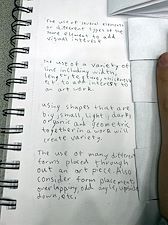 The use of several elements
or different types of the
same elements to add
visual interest
The use of a variety of
line including width,
length, texture, thickness
etc. to add interest to
an art work.
using shapes that are
big, small, light, dark,
organic and geometric
together in a work will
create variety.
The use of many different
forms placed through
out an art piece. Also
consider form placement
overlapping, odd angle, upside
down, etc.